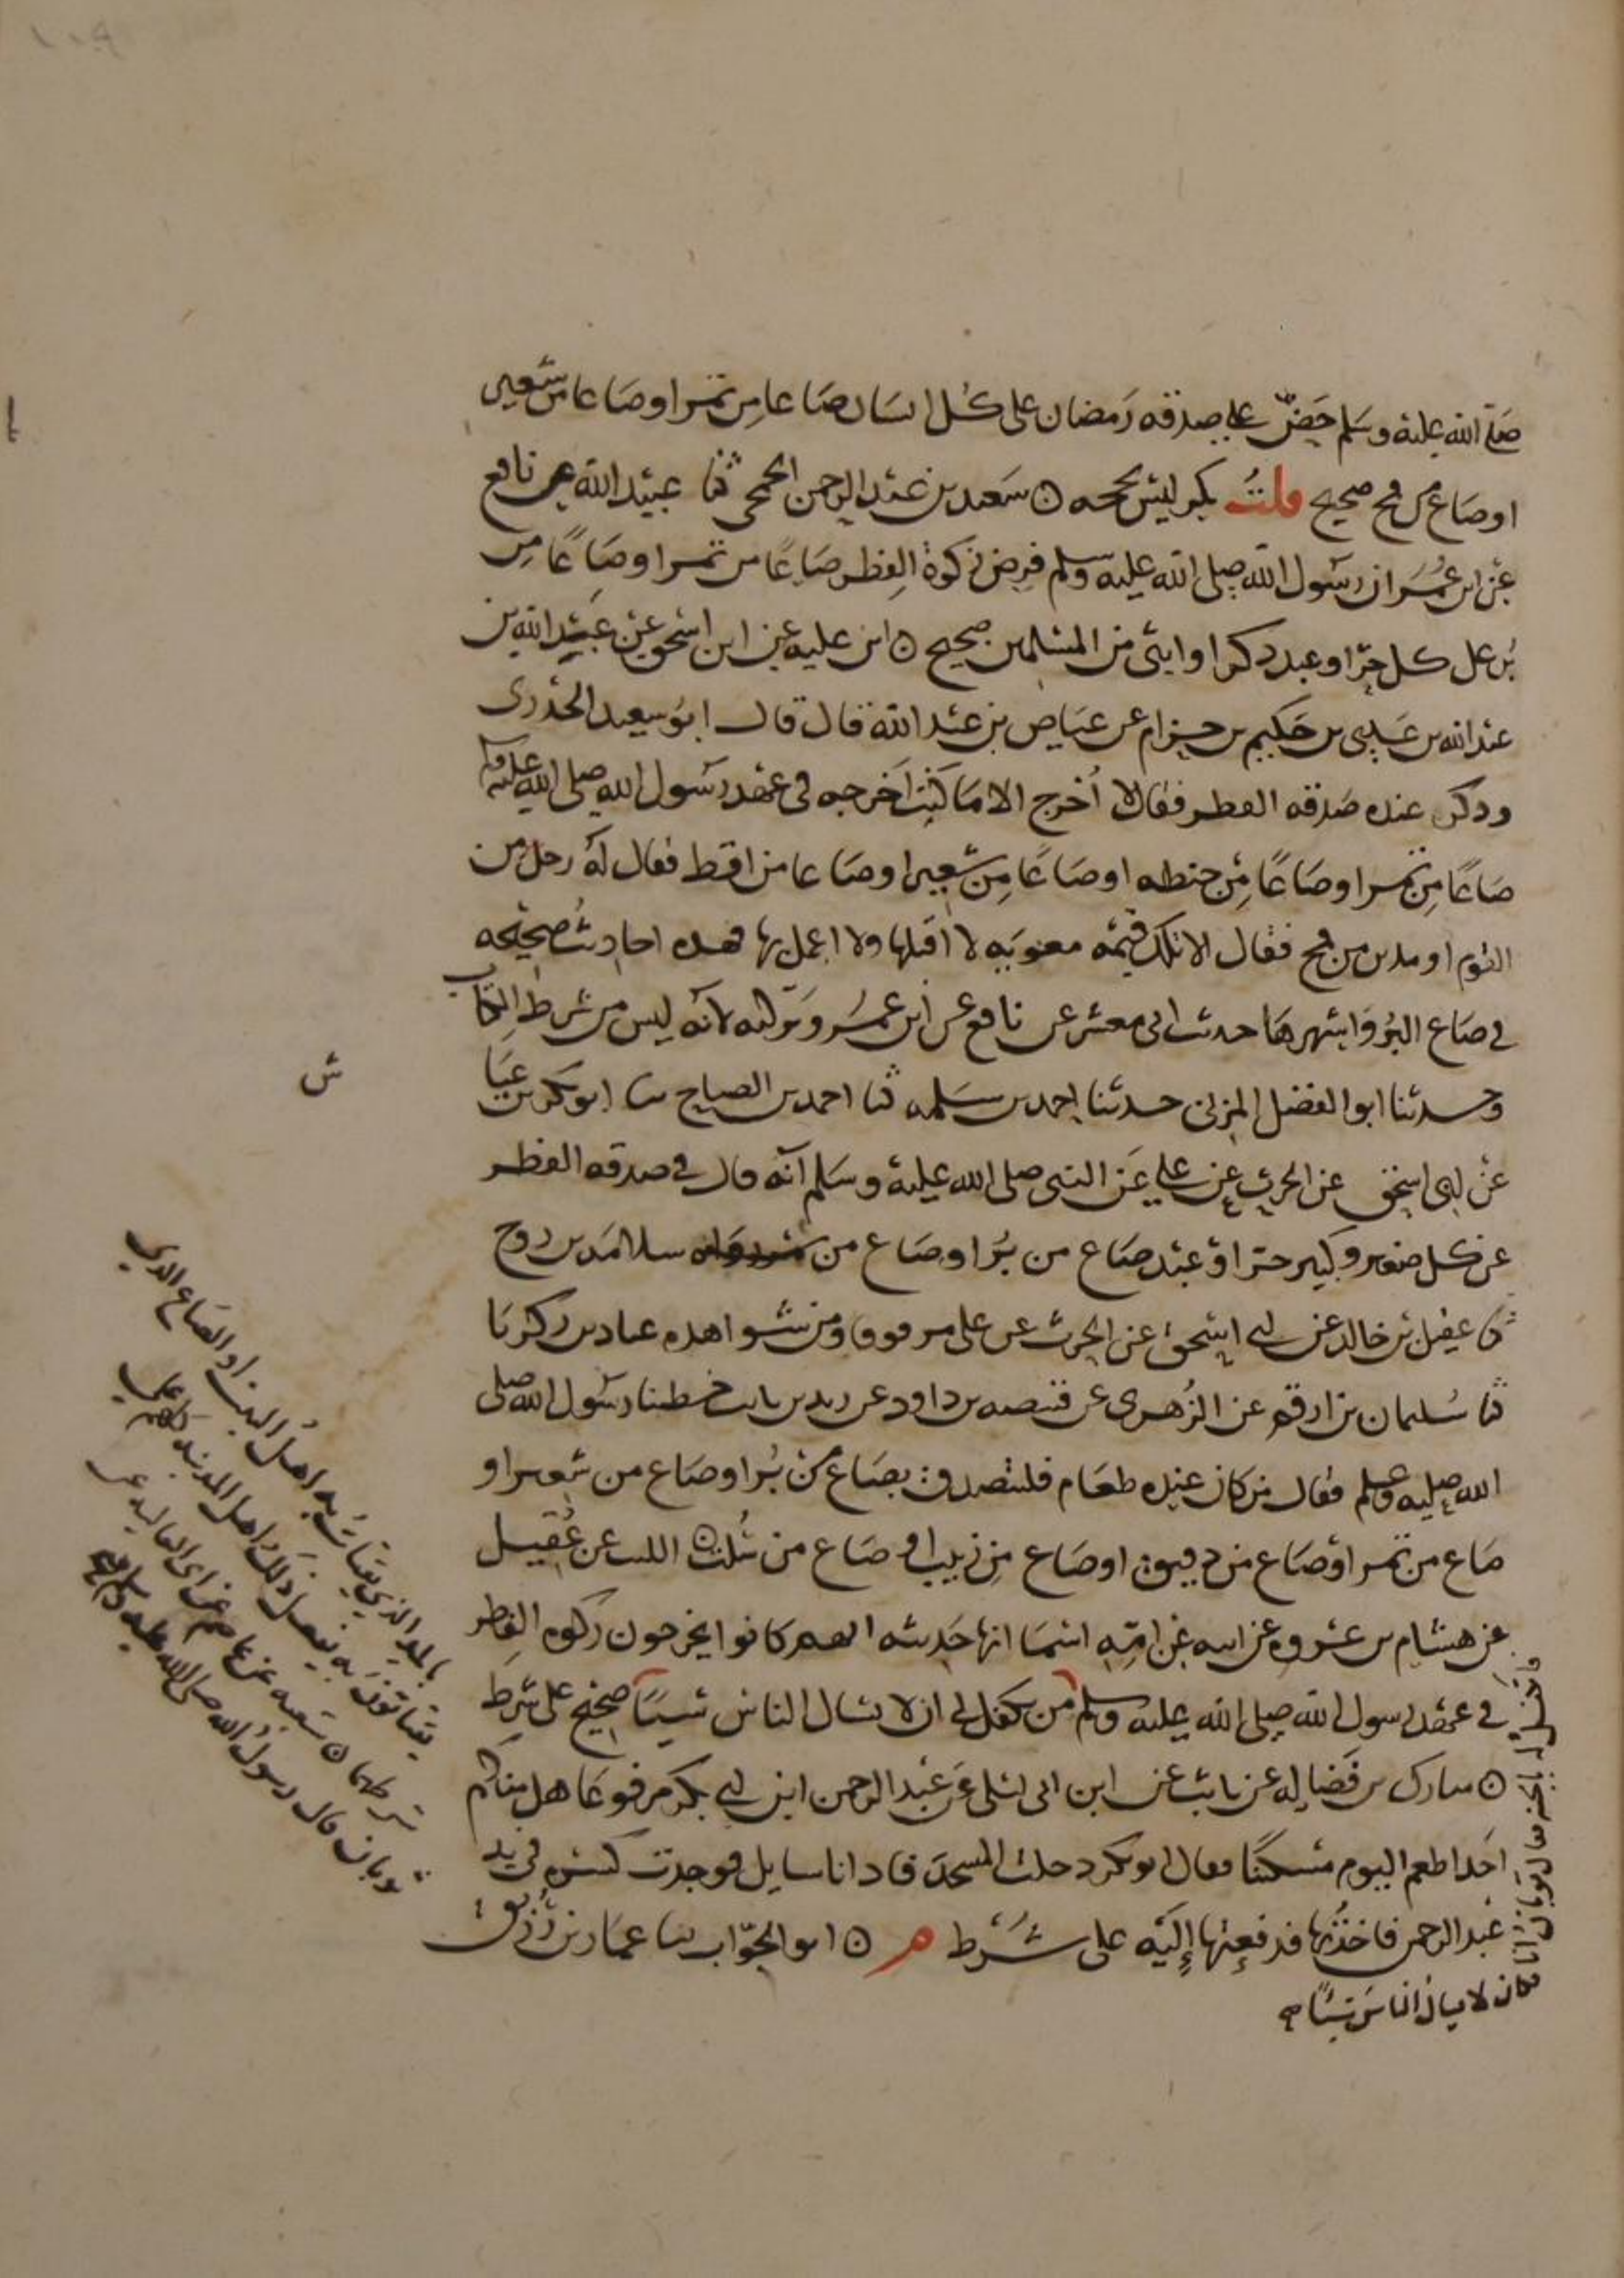 صلى الله عليه وسلم حض على صدقه رمضان على كل انسان صاعا من تمر او صاعا من شعير
او صاع من قمح صحيح قلت بكر ليس بحجه ٥ سعيد بن عبد الرحمن الجمحي ثنا عبيد الله عن نافع
عن ابن عمر ان رسول الله صلى الله عليه وسلم فرض زكوة الفطر صاعًا من تمر او صاعًا من
بُر على كل حرّ او عبد ذكر او انثى من المسلمين صحيح ٥ ابن عليه عن ابن اسحق عن عبيد الله بن
عبد الله بن عن حكيم بن حزام عن عياض بن عبد الله قال قال ابو سعيد الخدرى
وذكر عنده صدقه الفطر فقال لا أخرج الا ما كنت اخرجه في عهد رسول الله صلى الله عليه وسلم
صاعًا من تمر او صاعًا من حنطه او صاعًا من شعير او صاعا من اقط فقال له رجل من
القوم او مدين من قمح فقال لا تلك قيمه معويه لا اقبلها ولا اعمل بها فهذه احاديث صحيحه
في صاع البُر واشهرها حديث ابى معشر عن نافع عن ابن عمر وتركته لانه ليس من شرط الكتاب
وحدثنا ابو الفضل المزنى حدثنا احمد بن سلمه ثنا احمد بن الصباح ثنا ابو بكر بن عيا
ش
عن ابى اسحق عن الحرث عن علي عن النبى صلى الله عليه وسلم أنه قال في صدقه الفطر
عن كل صغير وكبير حر او عبد صاع من بُر او صاع من سلامه بن روح
ثنا عقيل بن خالد عن ابى اسحق عن الحرث عن على مرفوعا ومن شواهده عباد بن زكريا
ثنا سليمان بن ارقم عن الزُهرى عن قبيصه بن ذويب عن زيد بن ثابت خطبنا رسول الله صلى
الله عليه وسلم فقال من كان عنده طعام فليتصدق بصاع من بُر او صاع من شعير او
صاع من تمر او صاع من دقيق او صاع من زبيب او صاع من سُلت ٥ الليث عن عُقيل
عن هشام بن عروه عن ابيه عن امه اسما انها حدثته انهم كانوا يخرجون زكوه الفطر
في عهد رسول الله صلى الله عليه وسلم من يكفل لي ان لا يسال الناس شيئًا صحيح على شرط
٥ مبارك بن فضاله عن ثابت عن ابن ابى ليلى عن عبد الرحمن ابن ابى بكر مرفوعًا هل منكم
احد اطعم اليوم مسكينًا فقال ابو بكر دخلت المسجد فاذا انا سايل فوجدت كسره في يد
عبد الرحمن فاخذتها فدفعتها إليه على شرط م ٥ ابو الجوّاب ثنا عمار بن رُزيق
بالمد الذي يقتات به اهل البيت او الصاع الذي
يقتاتون به يفعل ذلك اهل المدينه كلهم على
شرطهما ٥ شعبه عن عاصم عن ابى العاليه عن
ثوبان قال رسول الله صلى الله عليه وسلم
الجنه فقال ثوبان انا
فكان لا يسال الناس شيئًا